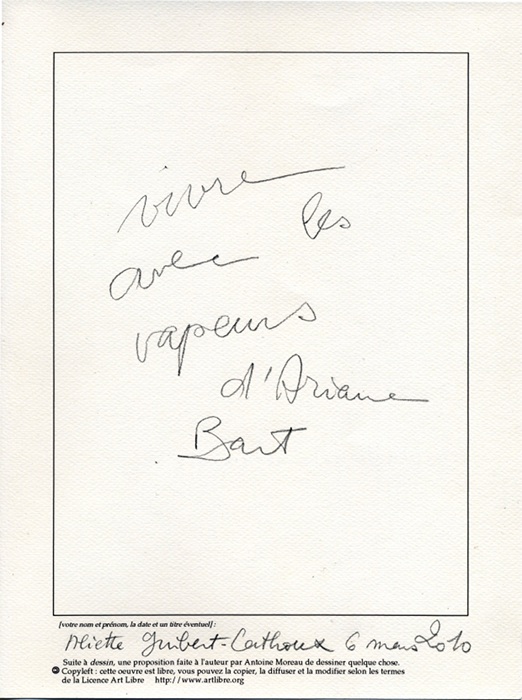 vivre
avec les
vapeurs
d'Ariane
Bart
[votre nom et prénom, la date et un titre éventuel] :
Aliette Guibert-Certhoux 6 mars 2010
Suite à dessin, une proposition faite à l'auteur par Antoine Moreau de dessiner quelque chose.
Copyleft : cette oeuvre est libre, vous pouvez la copier, la diffuser et la modifier selon les termes
de la Licence Art Libre http://www.artlibre.org